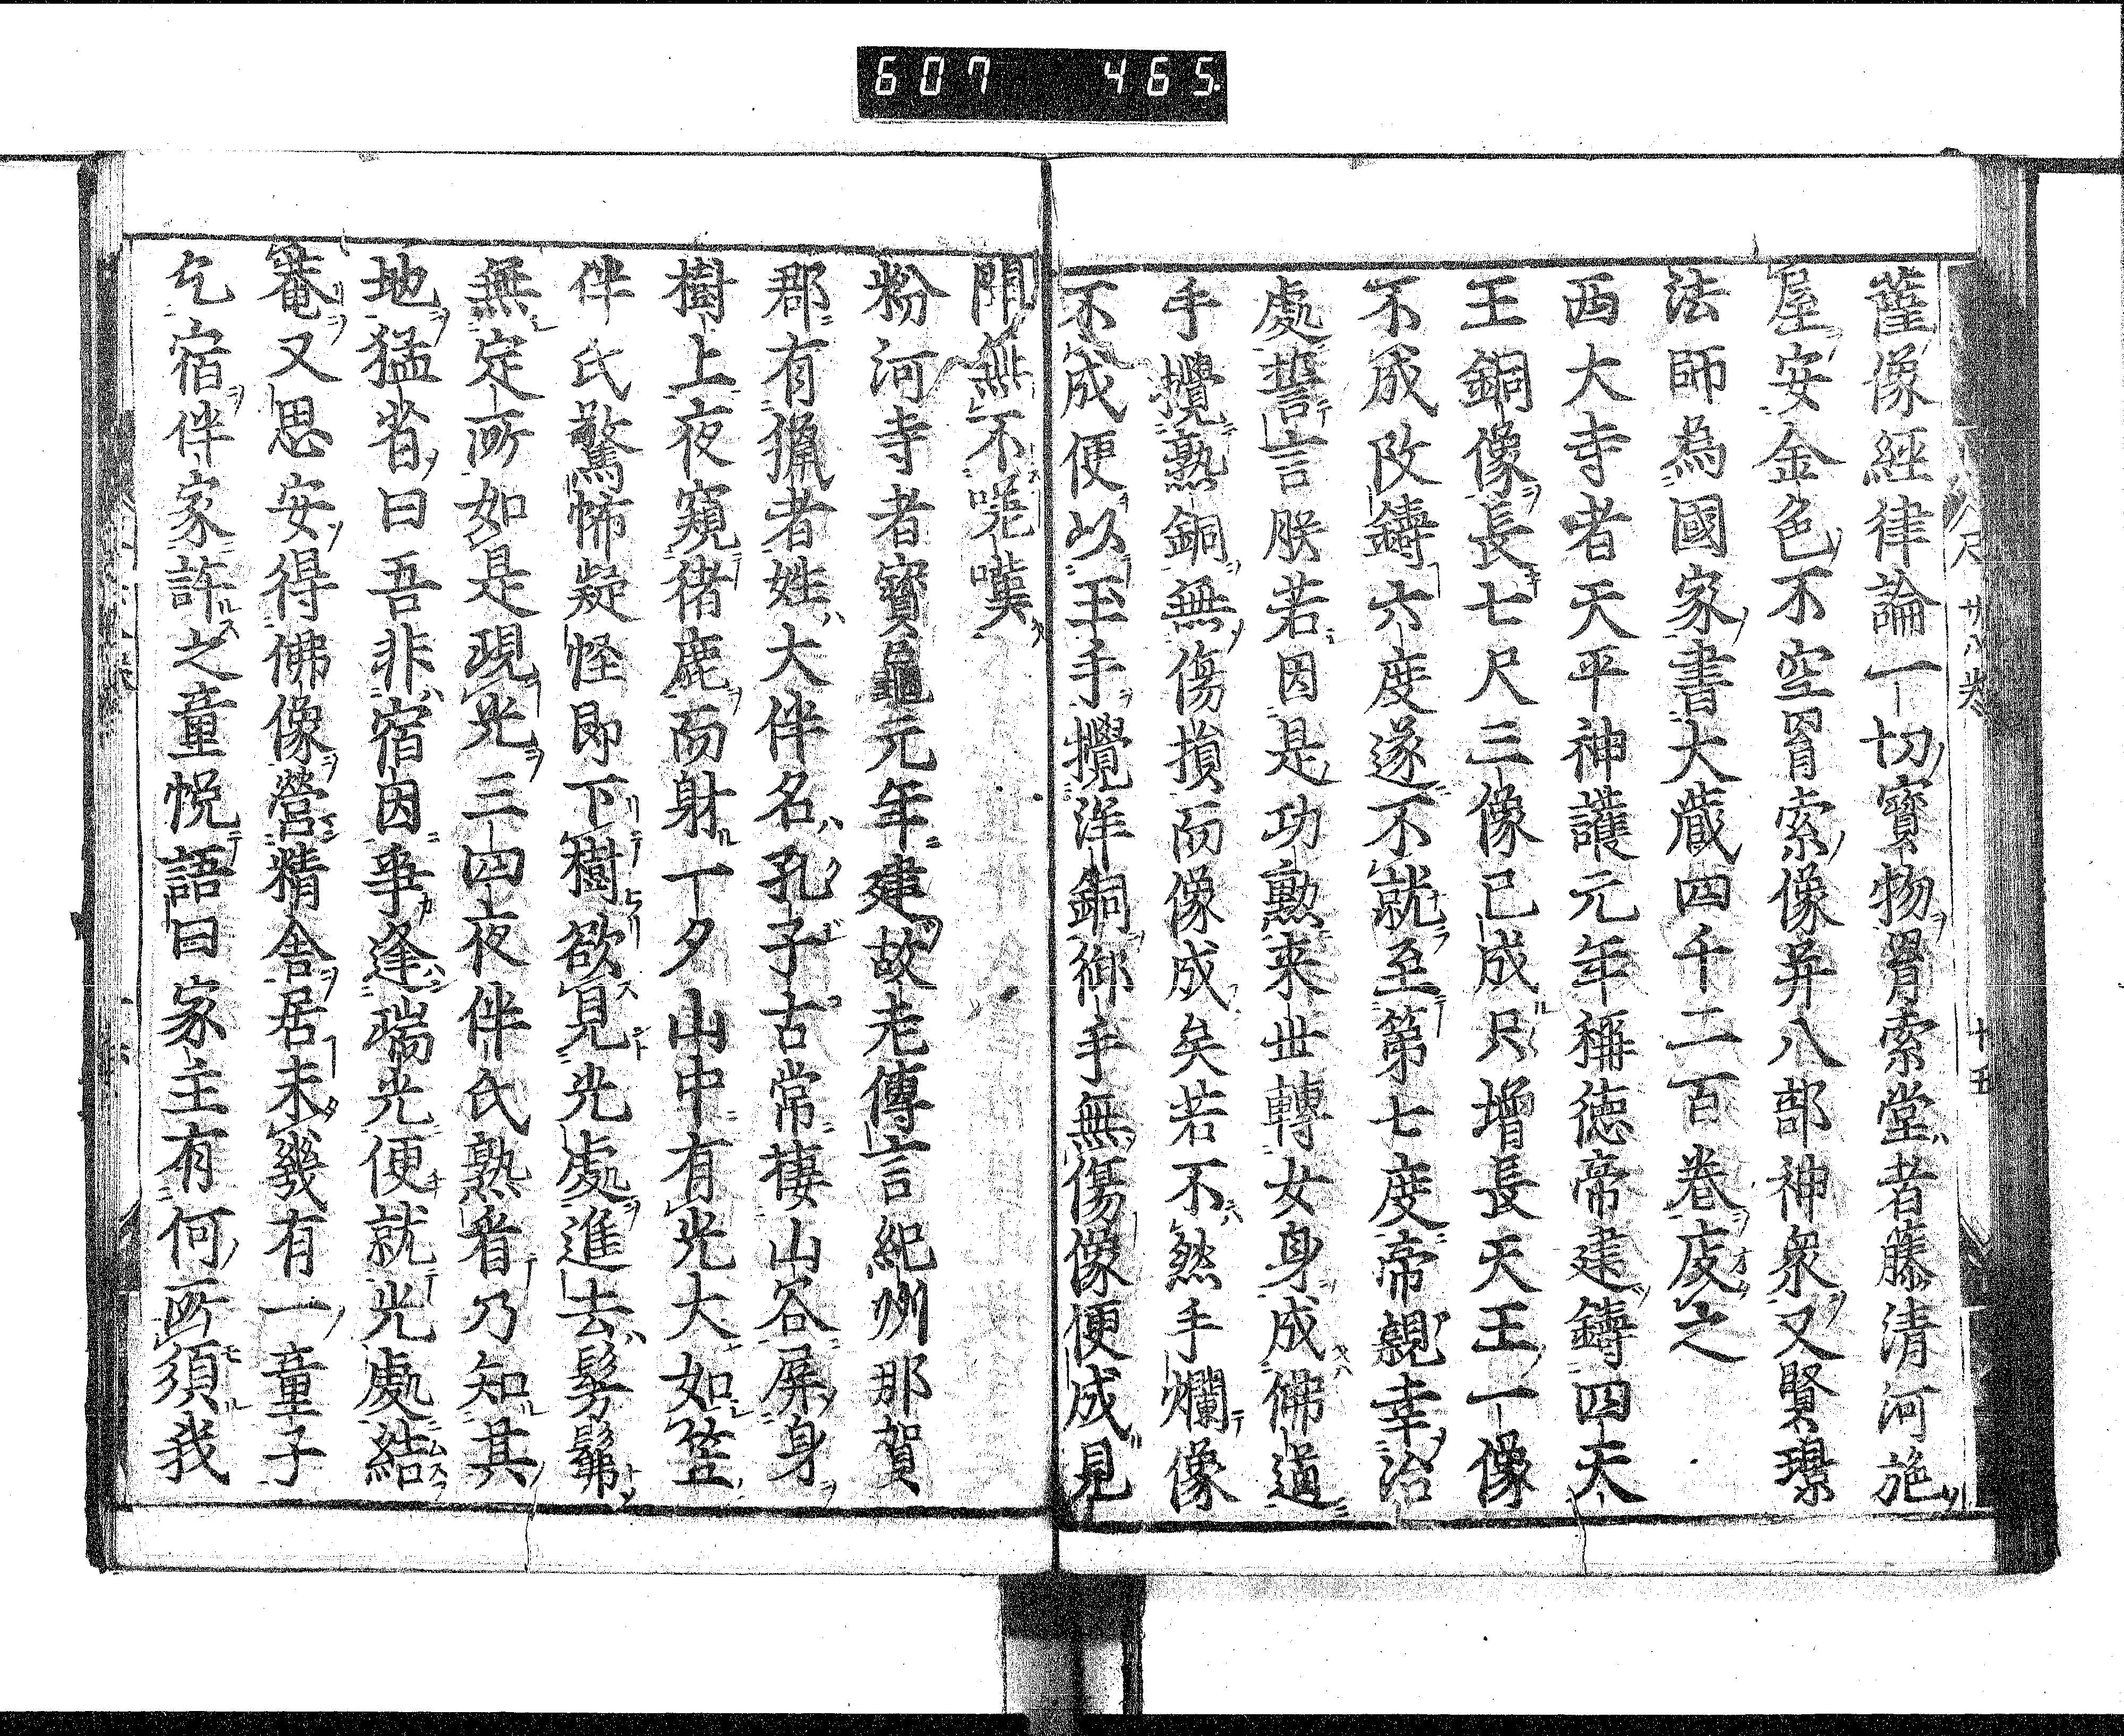 607 465
廿八卷 十五
薩像經律論一切寶物羂索堂者藤清河施
屋安金色不空羂索像并八部神衆又賢璟
法師為國家書大藏四千二百卷庋之
西大寺者天平神護元年稱德帝建鑄四天
王銅像長七尺三像已成只增長天王一像
不成改鑄六度遂不就至第七度帝親幸冶
處誓言朕若因是功勲来世轉女身成佛道
手攪熟銅無傷損而像成矣若不然手爛像
不成便以玉手攪洋銅御手無傷像便成見
聞無不嗟嘆
粉河寺者寳龜元年建故老傳言紀州那賀
郡有獵者姓大伴名孔子古常棲山谷屏身
樹上夜窺猪鹿而射一夕山中有光大如笠
伴氏驚怖疑怪即下樹欲見光處進去髣髴
無定所如是現光三四夜伴氏熟看乃知其
地猛省曰吾非宿因爭逢端光便就光處結
菴又思安得佛像營精舎居未幾有一童子
乞宿伴家許之童悦語曰家主有何所須我